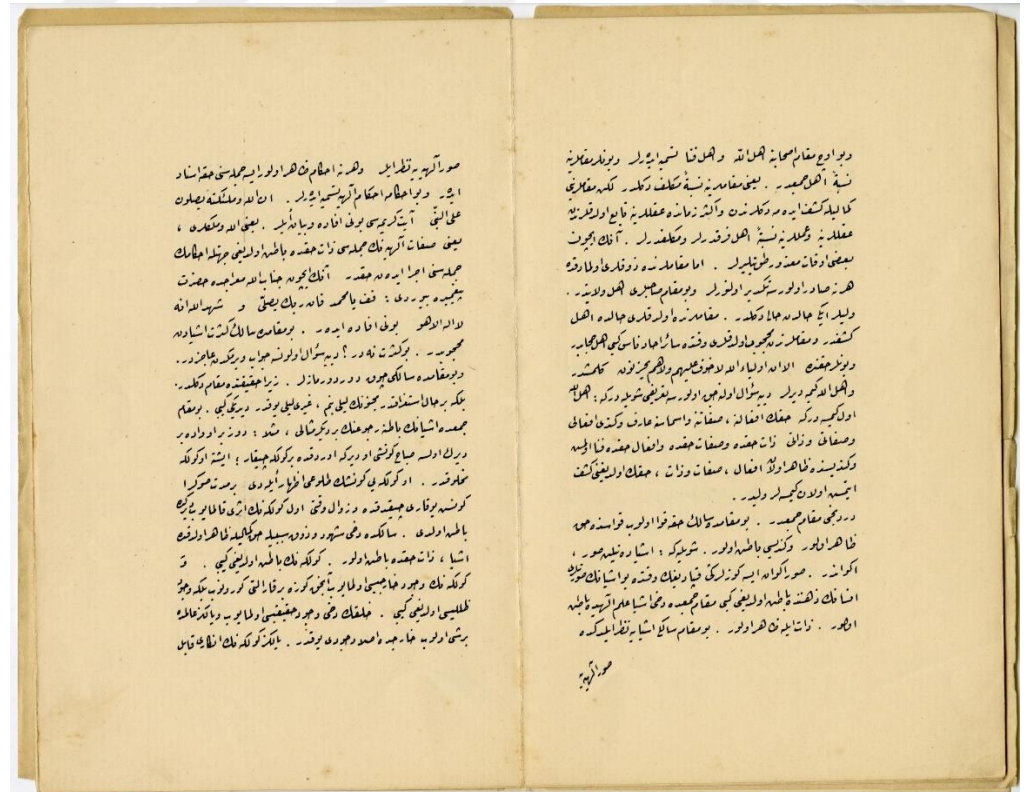 وبو اوج مقام اصحابنه اهل الله و اهل فنا تسميه ايدرلر وبونلر مقاملرينه
نسبةً اهل جمعدر . يعنى مقاملرينه نسبةً مكلف دكلدر . لكن مقاملرنى
كماليله كشف ايده مدكلرندن و اكثر زمانده عقللرينه تابع اولدقلرندن
عقللرينه و عمللرينه نسبةً اهل فرقدرلر و مكلفدرلر . آنك ايچون
بعضى اوقات معذور طوتيليرلر . اما مقاملرنده ذوقلرى اولمادقده
هر نه صادر اولورسه تكدير اولنورلر و بومقام صاحبلرى اهل ولايتدر .
وليلر ايكى حالدن خالى دكلدر . مقاملرنده اولدقلرى حالده اهل
كشفدر و مقاملرندن محجوب اولدقلرى وقتده سائر احاد ناس كبى اهل حجابدر
وبونلر حقنده الا ان اولياء الله لا خوف عليهم ولاهم يحزنون كلمشدر
و اهل الله كيمه ديرلر ديه سؤال اولنه جق اولورسه تعريفى شويله دركه : اهل الله
اول كيمسه دركه حقك افعالنه ، صفاتنه و اسماسنه عارف و كندى افعالى
و صفاتى و ذاتى ذات حقده و صفات حقده و افعال حقده فنا بولمش
و كنديسنده ظاهر اولان افعال ، صفات و ذات ، حقك اولديغنى كشف
ايتمش اولان كيمسه لر وليدر .
دردنجى مقام جمعدر . بومقامده سالك حقه قوا اولوب قواسنده حق
ظاهر اولور و كنديسى باطن اولور . شويله كه : اشياده نيلين صور ،
اكواندر . صور اكوان ايسه كوزلركى قپاديغك وقتده بو اشيانك صورتلرى
انسانك ذهننده باطن اولديغى كبى مقام جمعده دخى اشيا علم الهيده باطن
اولور . ذات ايله ظاهر اولور . بومقام سالكى اشيايه نظر ايلدكده
صور الهيه يه
صور الهيه يه نظر ايلر و هر نه احكام ظاهر اولور ايسه جمله سنى حقه اسناد
ايدر و بو احكامه احكام الهيه تسميه ايدرلر . ان الله وملئكته يصلون
على النبى آيت كريمه سى بونى افاده و بيان ايلر . يعنى الله و ملكلرى ،
يعنى صفات الهيه نك جمله سى ذات حقده باطن اولديغى جهتله احكامك
جمله سنى اجرا ايدن حقدر آنك ايچون جناب الله معراجده حضرت
پيغمبره بيوردى : قف يا محمد فان ربك يصلّى و شهد الله انه
لا اله الا هو بونى افاده ايدر . بومقامده سالك كثرت اشيادن
محجوبدر . بو كثرت نه در ؟ ديه سؤال اولونسه جواب ويرمكدن عاجزدر.
و بومقامده سالكى چوق دوردورمازلر . زيرا حقيقتده مقام دكلدر.
بلكه بر حال استغراقدر مجنونك ليلى بنم ، غيرى ليلى يوقدر ديديكى كبى . بومقام
جمعده اشيانك باطنه رجوعنك بر ديكر مثالى ، مثلا : دوز بر اووا ده بر
ديرك اولسه صباح كونشى او ديركه اوردقده بر كولكه چيقار ؛ ايشته او كولكه
مخلوقدر . او كولكه يى كونشك طلوعى اظهار ايلدى بر مدت صوكرا
كونش يوقارى چيقدقده و زوال وقتى اول كولكه نك اثرى قالمايوب ديركده
باطن اولدى . سالكده دخى شهود و ذوق سببيله حق كماليله ظاهر اولدقده
اشيا ، ذات حقده باطن اولور . كولكه نك باطن اولديغى كبى . و
كولكه نك وجود خارجيسى اولمايوب آنجق كوزه بر قارالتى كورونوب بلكه وجود
ظلليسى اولديغى كبى . خلقك دخى وجود حقيقيسى اولمايوب و يالكز علمده
بر شى اولوب خارجده اصلا وجودى يوقدر . يالكز كولكه نك انكارى قابل